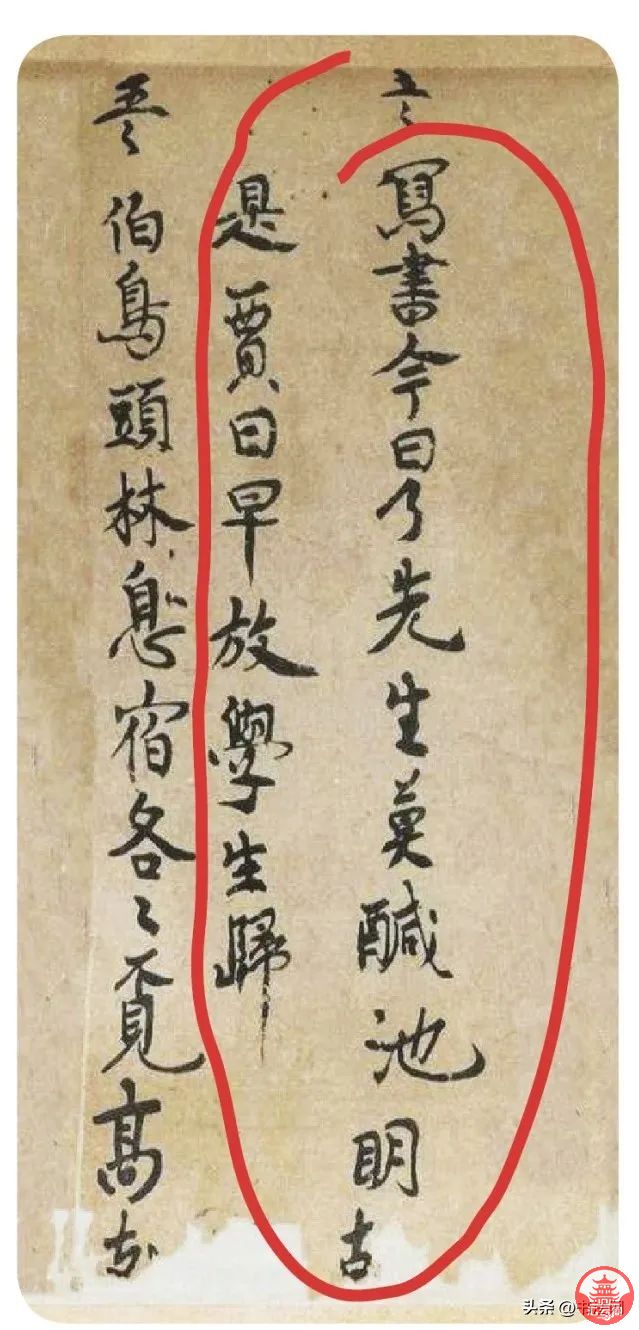 五言 寫書今日了先生莫醎池明
是賈日早放學生歸
五言 伯鳥頭林息宿各〻覔高
头条